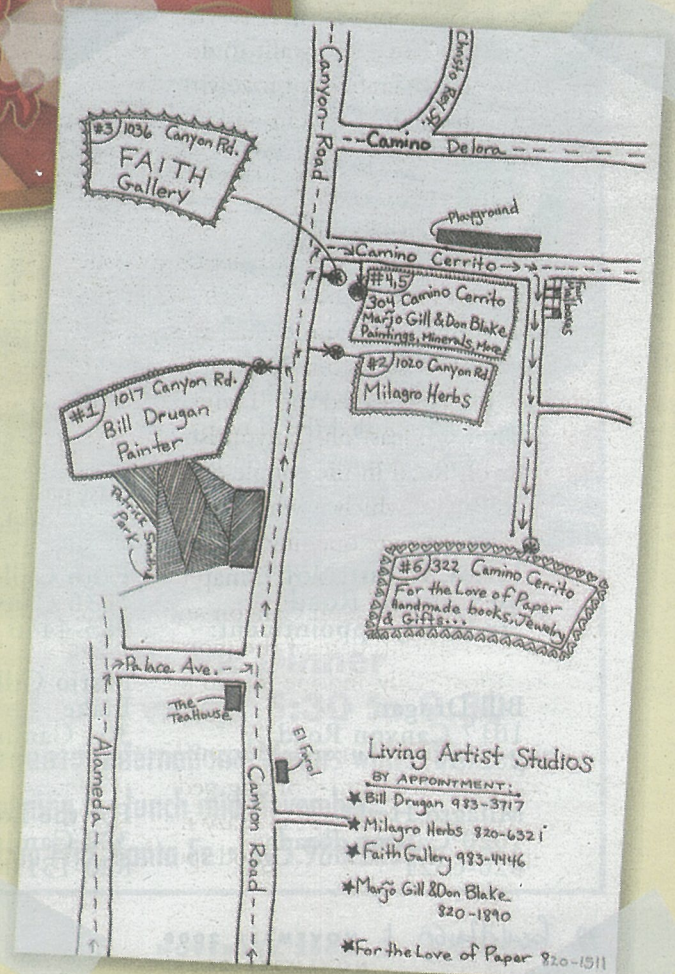 Christo Rey St.
Canyon Road
Camino Delora
#3 1036 Canyon Rd.
FAITH
Gallery
Playground
Camino Cerrito
Four Mailboxes
#4,5
304 Camino Cerrito
Marjo Gill & Don Blake
Paintings, Minerals, More
#2 1020 Canyon Rd
Milagro Herbs
#1 1017 Canyon Rd.
Bill Drugan
Painter
Patrick Smith
Park
#6 322 Camino Cerrito
For the Love of Paper
handmade books, Jewelry
& Gifts...
Palace Ave.
The
TeaHouse
El Farol
Alameda
Canyon Road
Living Artist Studios
BY APPOINTMENT:
★Bill Drugan 983-3717
★Milagro Herbs 820-6321
★Faith Gallery 983-4446
★Marjo Gill & Don Blake
820-1890
★For the Love of Paper 820-1511